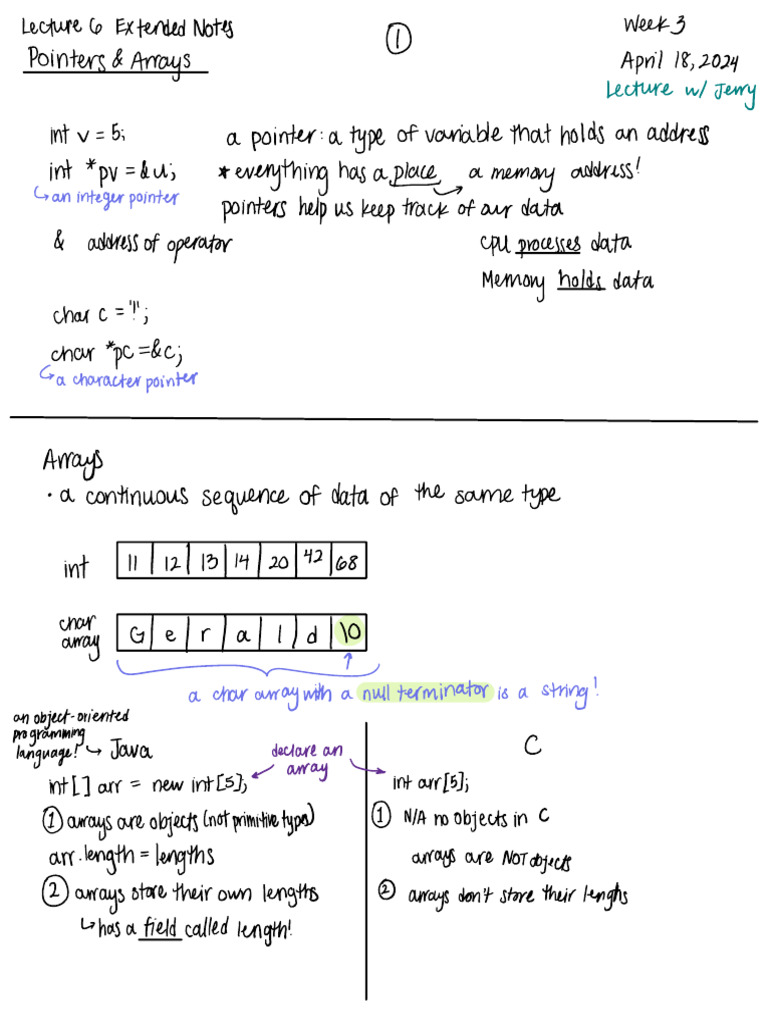 Lecture 6 Extended Notes
Pointers & Arrays
1
Week 3
April 18, 2024
Lecture w/ Jerry
int v = 5;
int *pv = &u;
an integer pointer
& address of operator
a pointer: a type of variable that holds an address
* everything has a place a memory address!
pointers help us keep track of our data
CPU processes data
Memory holds data
char c = '!';
char *pc = &c;
a character pointer
Arrays
• a continuous sequence of data of the same type
int 11 12 13 14 20 42 68
char array G e r a l d \0
a char array with a null terminator is a string!
an object-oriented
programming
language! Java
declare an
array
int[] arr = new int[5];
1 arrays are objects (not primitive type)
arr.length = lengths
2 arrays store their own lengths
has a field called length!
C
int arr[5];
1 N/A no objects in C
arrays are NOT objects
2 arrays don't store their lenghs